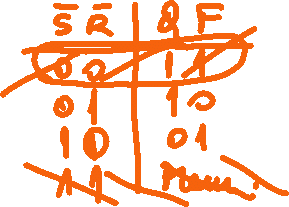 S̅ R̅ Q F
0 0 1 1
0 1 1 0
1 0 0 1
1 1